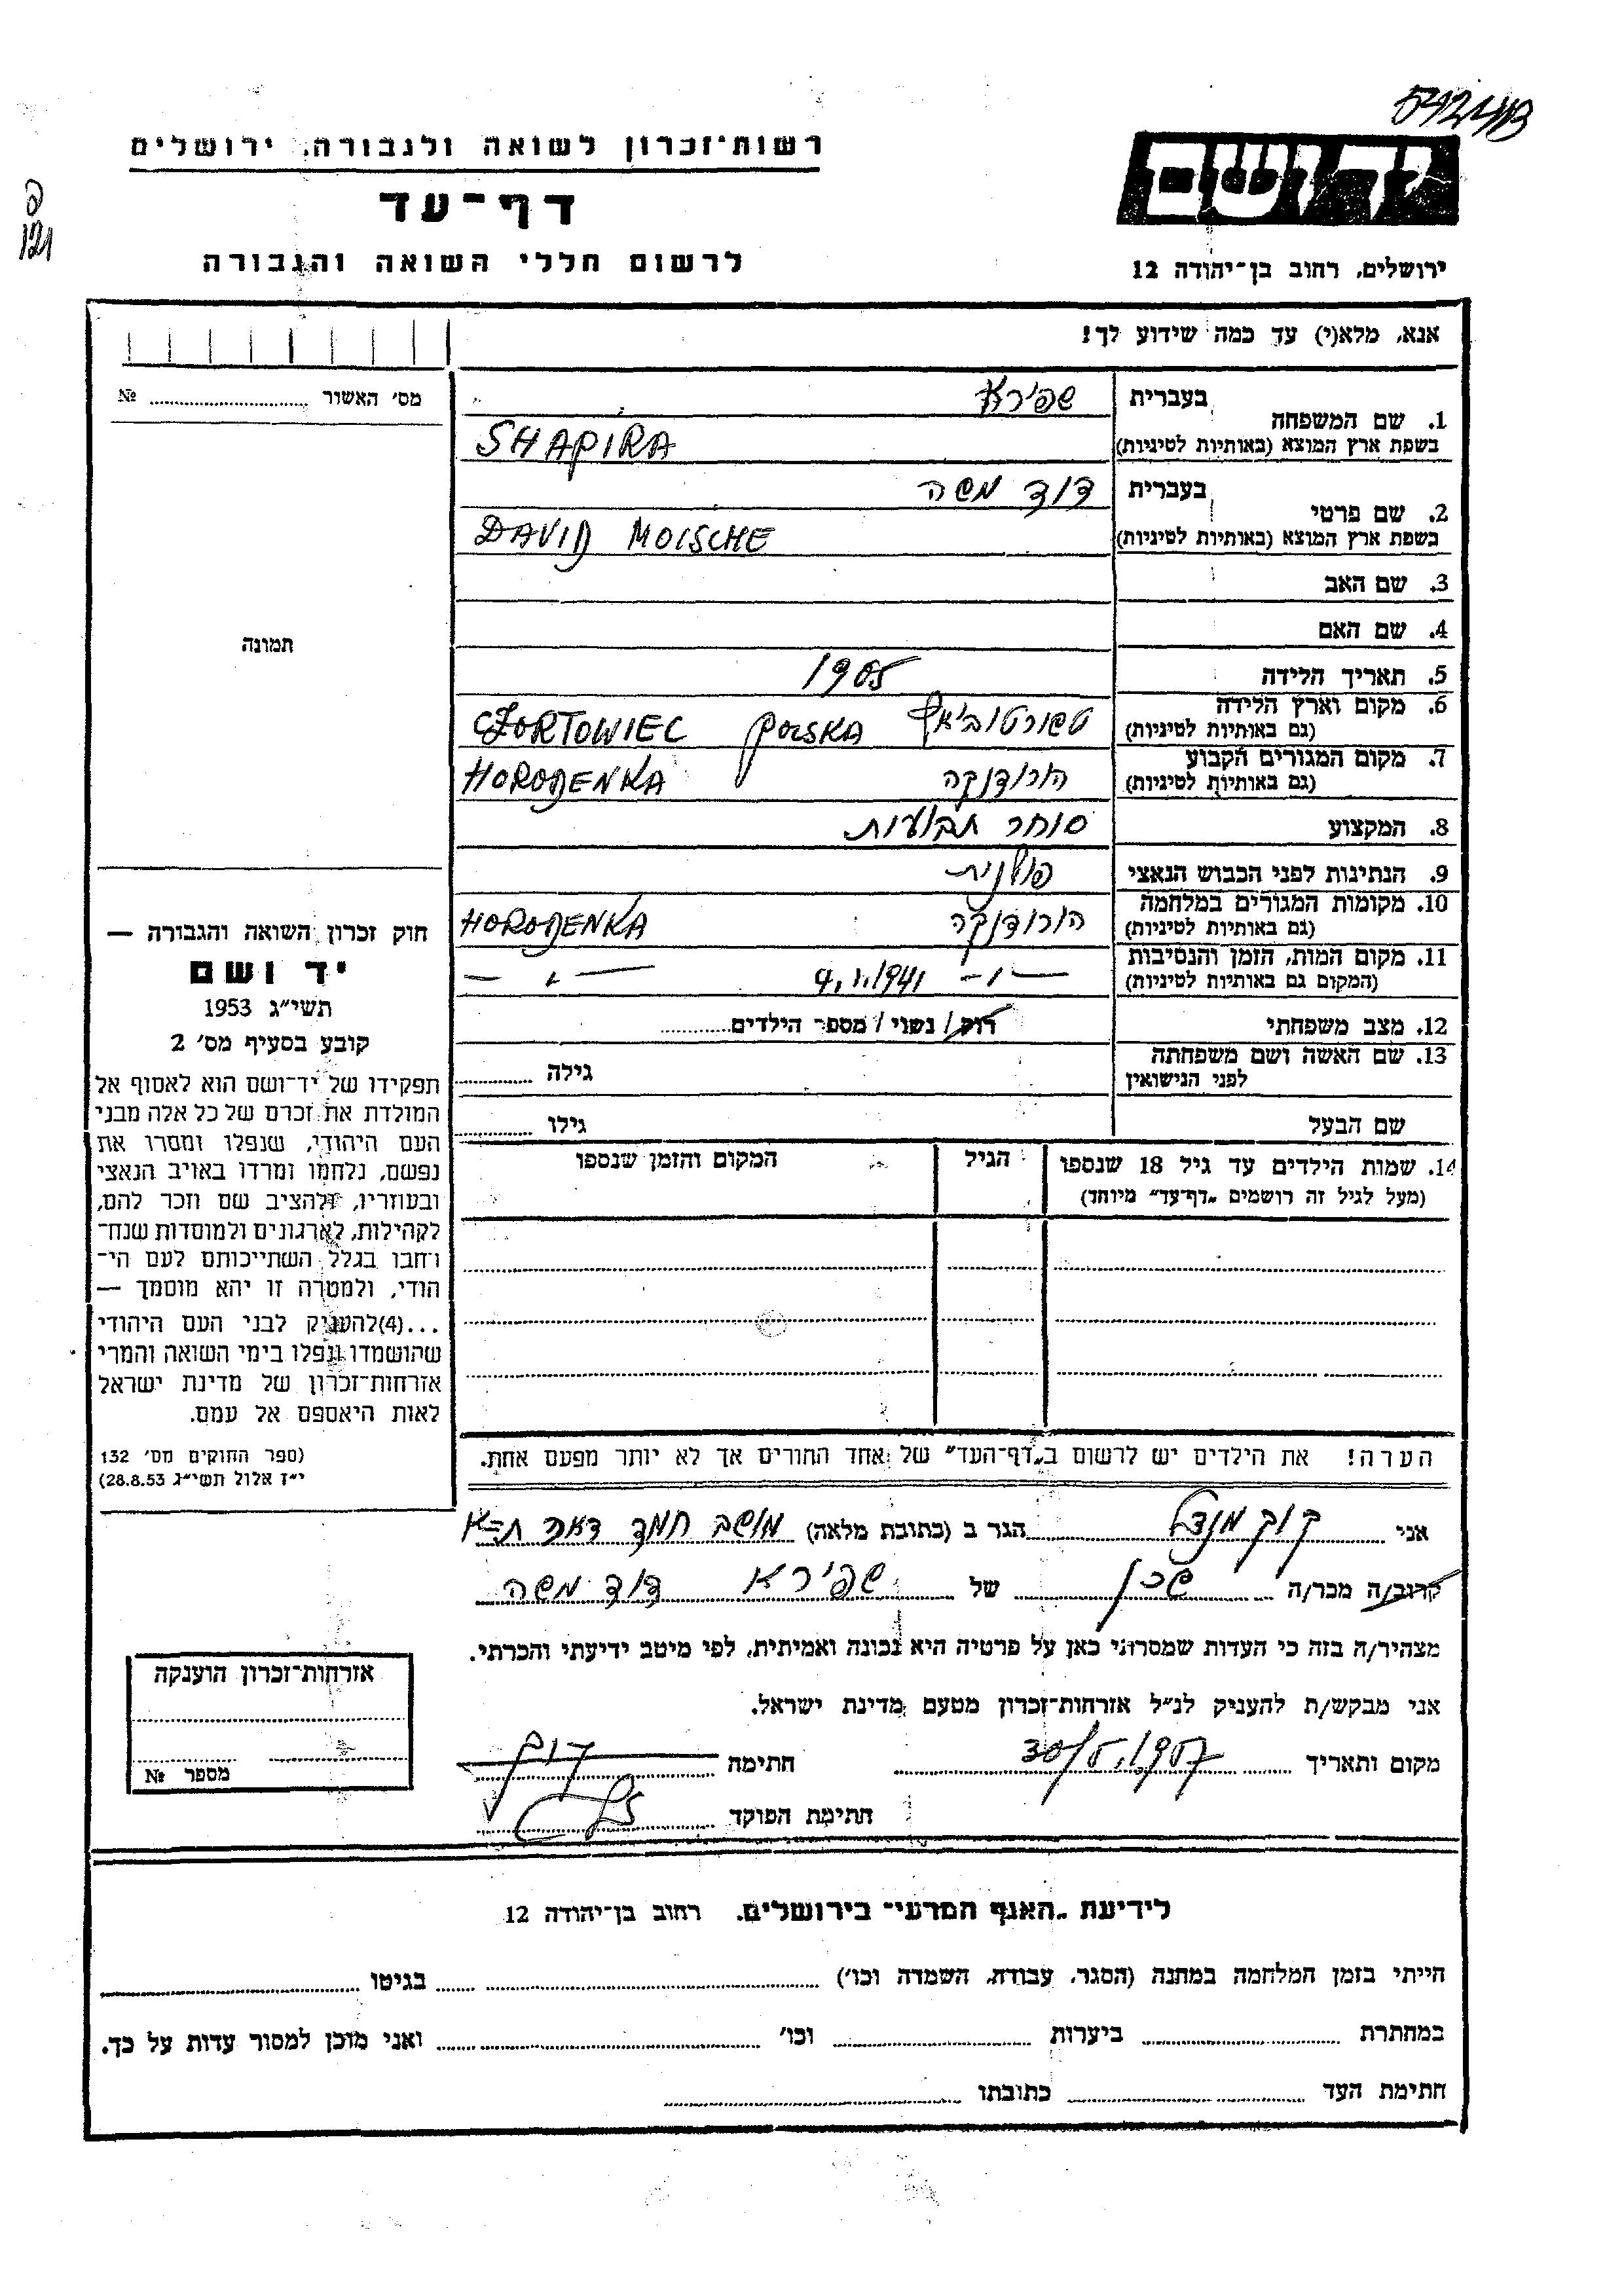 רשות־זכרון לשואה ולגבורה, ירושלים
דף־עד
לרשום חללי השואה והגבורה
יד ושם
ירושלים, רחוב בן־יהודה 12
אנא, מלא(י) עד כמה שידוע לך!
מס׳ האשור № 
בעברית שפירא
1. שם המשפחה
בשפת ארץ המוצא (באותיות לטיניות) SHAPIRA
בעברית דוד משה
2. שם פרטי
בשפת ארץ המוצא (באותיות לטיניות) DAVID MOISCHE
3. שם האב
4. שם האם
תמונה
5. תאריך הלידה 1905
6. מקום וארץ הלידה
(גם באותיות לטיניות) CZORTOWIEC POLSKA
7. מקום המגורים הקבוע הורודנקה HORODENKA
(גם באותיות לטיניות)
8. המקצוע סוחר תבואות
9. הנתינות לפני הכבוש הנאצי פולנית
10. מקומות המגורים במלחמה הורודנקה HORODENKA
(גם באותיות לטיניות)
11. מקום המות, הזמן והנסיבות
(המקום גם באותיות לטיניות) — ״ — 4.1.1941 — ״ —
12. מצב משפחתי רוק / נשוי / מספר הילדים
13. שם האשה ושם משפחתה גילה
לפני הנישואין
שם הבעל גילו
14. שמות הילדים עד גיל 18 שנספו הגיל המקום והזמן שנספו
(מעל לגיל זה רושמים „דף־עד״ מיוחד)
חוק זכרון השואה והגבורה —
יד ושם
תשי״ג 1953
קובע בסעיף מס׳ 2
תפקידו של יד־ושם הוא לאסוף אל
המולדת את זכרם של כל אלה מבני
העם היהודי, שנפלו ומסרו את
נפשם, נלחמו ומרדו באויב הנאצי
ובעוזריו, ולהציב שם וזכר להם,
לקהילות, לארגונים ולמוסדות שנח־
רחבו בגלל השתייכותם לעם הי־
הודי, ולמטרה זו יהא מוסמך —
...(4)להעניק לבני העם היהודי
שהושמדו ונפלו בימי השואה והמרי
אזרחות־זכרון של מדינת ישראל
לאות היאספם אל עמם.
(ספר החוקים מס׳ 132
י״ז אלול תשי״ג 28.8.53)
הערה! את הילדים יש לרשום ב„דף־העד״ של אחד ההורים אך לא יותר מפעם אחת.
אני קוק מנדל הגר ב (כתובת מלאה) מושב חמד דאר ת־א
קרוב/ה מכר/ה שכן של שפירא דוד משה
מצהיר/ה בזה כי העדות שמסרתי כאן על פרטיה היא נכונה ואמיתית, לפי מיטב ידיעתי והכרתי.
אני מבקש/ת להעניק לנ״ל אזרחות־זכרון מטעם מדינת ישראל.
מקום ותאריך 30/5.1957 חתימה
חתימת הפוקד
אזרחות־זכרון הוענקה
מספר №
לידיעת „האגף המדעי״ בירושלים, רחוב בן־יהודה 12
הייתי בזמן המלחמה במחנה (הסגר, עבודה, השמדה וכו׳) בגיטו
במחתרת ביערות וכו׳ ואני מוכן למסור עדות על כך.
חתימת העד כתובתו